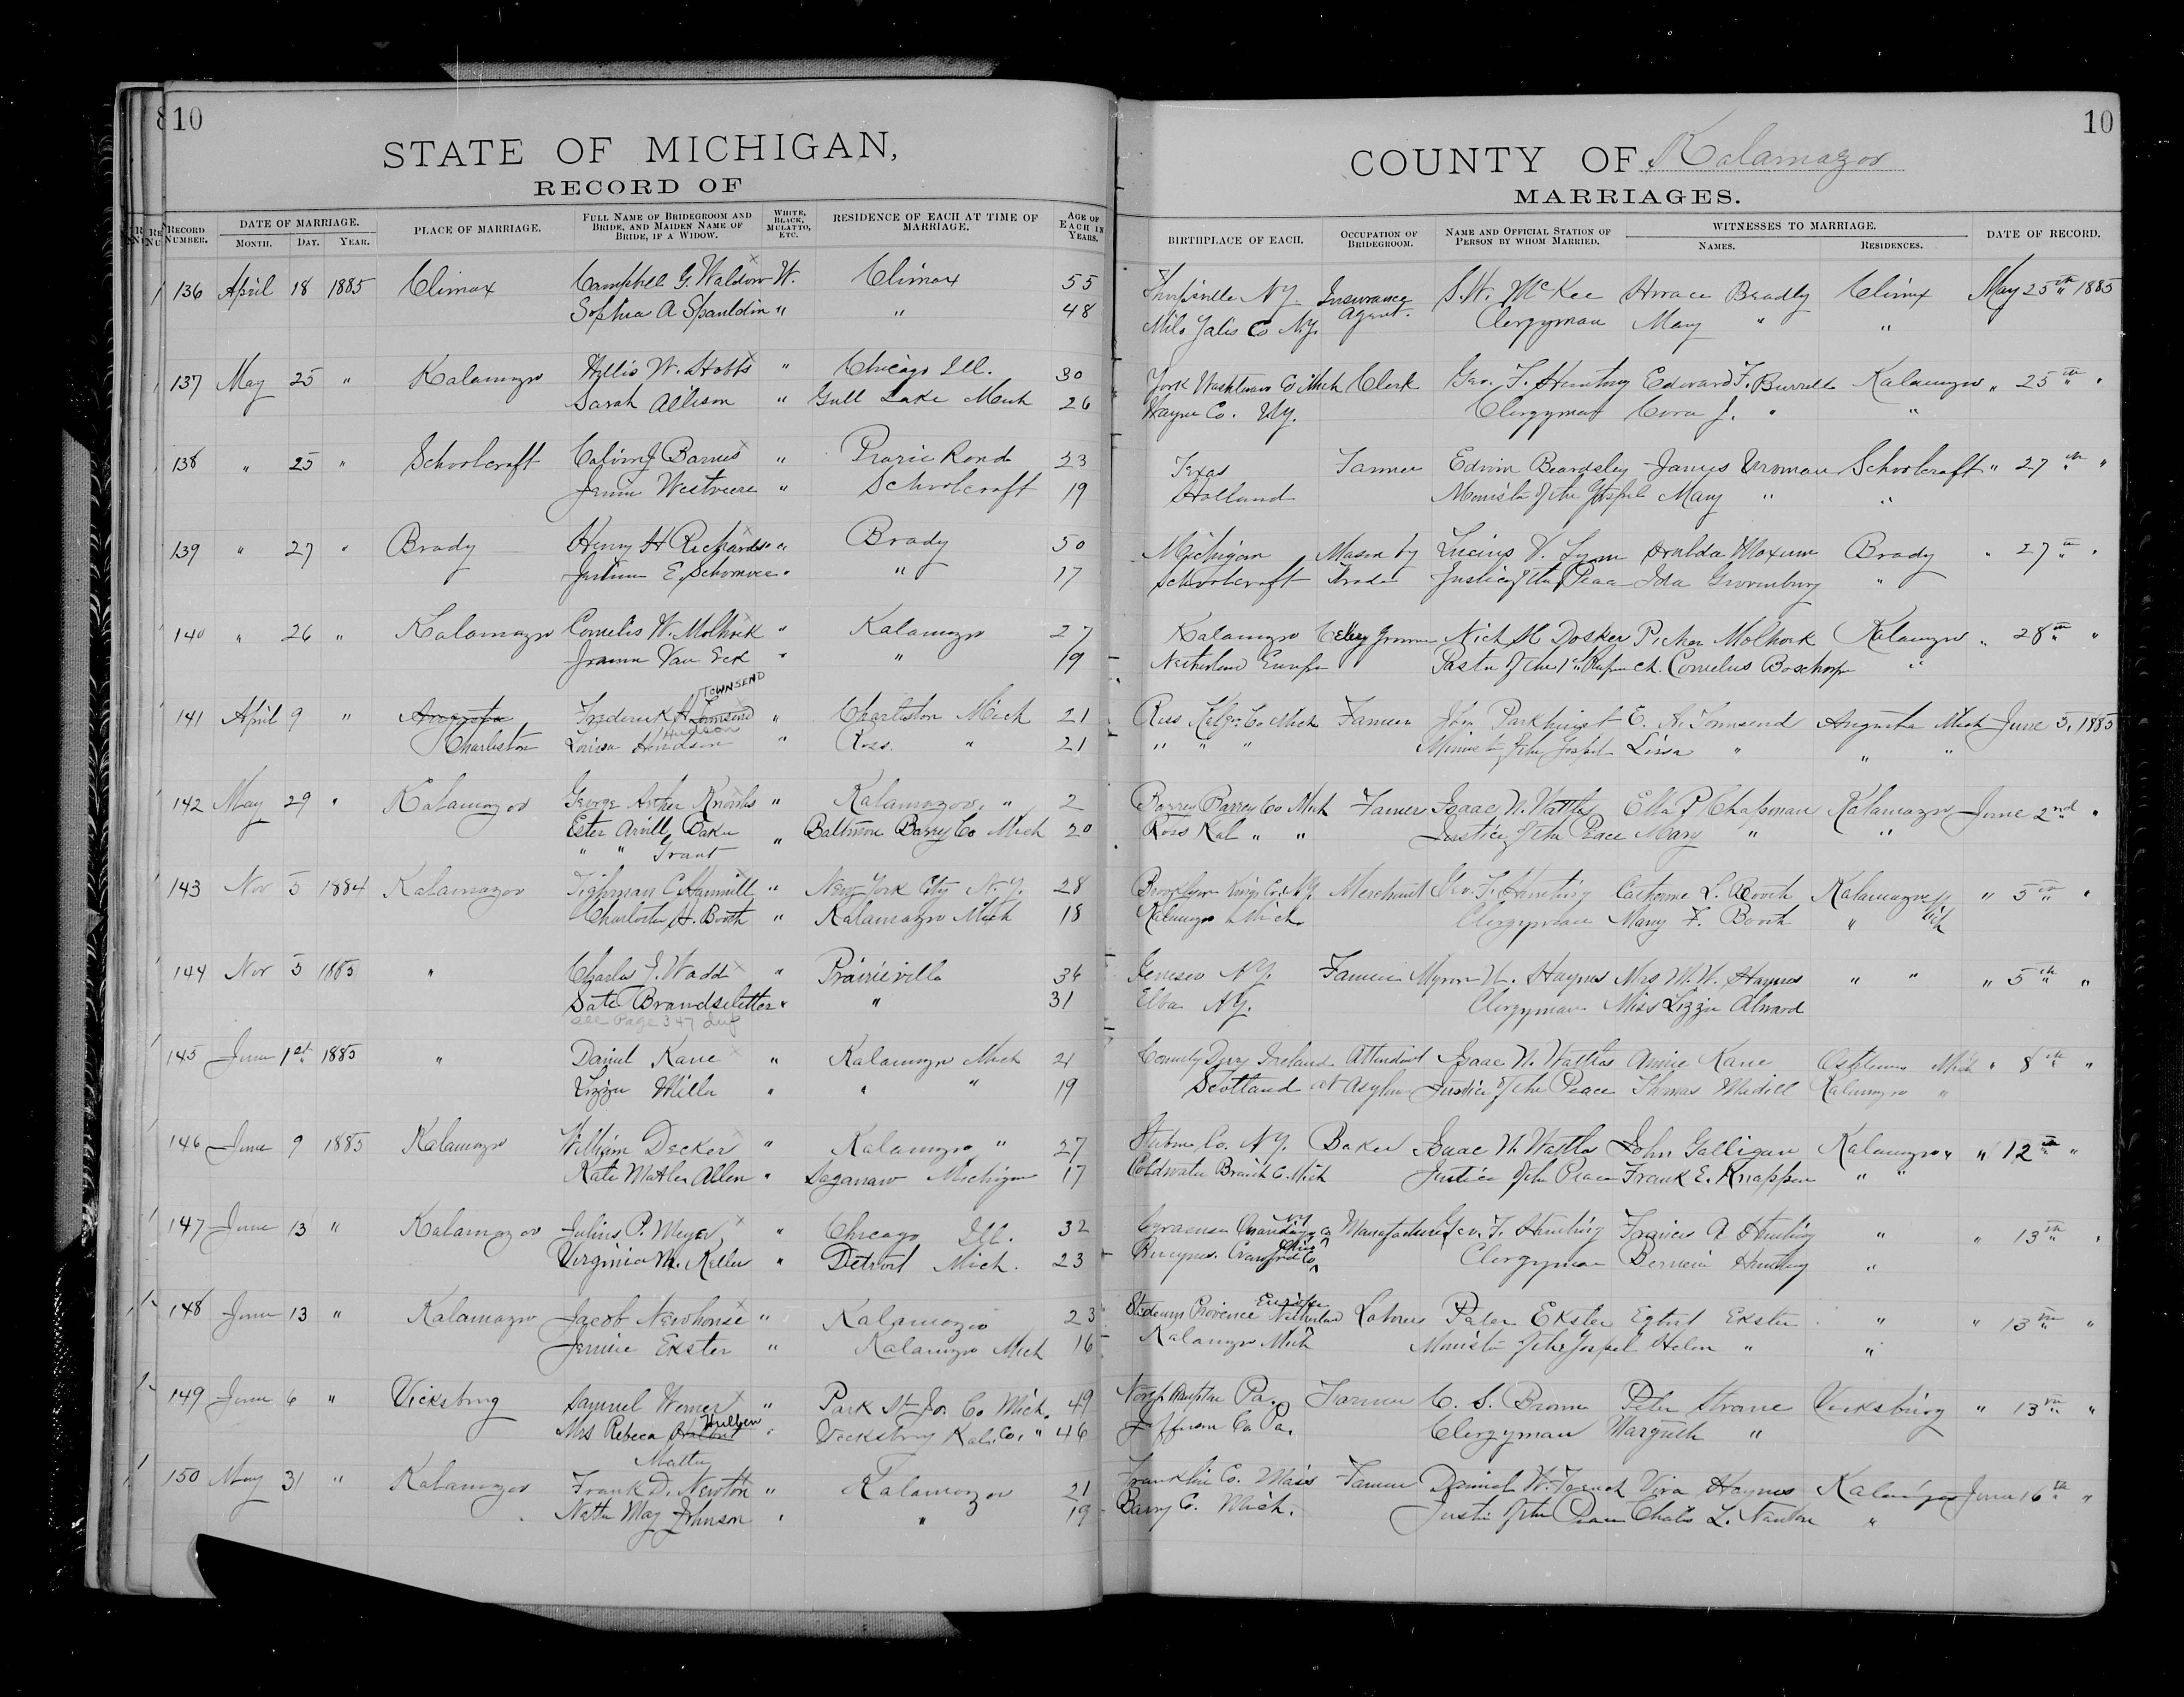 10
STATE OF MICHIGAN,
RECORD OF
10
COUNTY OF Kalamazoo
MARRIAGES.
RECORD NUMBER. DATE OF MARRIAGE. MONTH. DAY. YEAR. PLACE OF MARRIAGE. FULL NAME OF BRIDEGROOM AND BRIDE, AND MAIDEN NAME OF BRIDE, IF A WIDOW. WHITE, BLACK, MULATTO, ETC. RESIDENCE OF EACH AT TIME OF MARRIAGE. AGE OF EACH IN YEARS. BIRTHPLACE OF EACH. OCCUPATION OF BRIDEGROOM. NAME AND OFFICIAL STATION OF PERSON BY WHOM MARRIED. WITNESSES TO MARRIAGE. NAMES. RESIDENCES. DATE OF RECORD.
136 April 18 1885 Climax Campbell G. Waldron W. Climax 55 N.Y. Insurance Agent. S. W. McKee Horace Bradly Climax May 25th 1885
Sophia A Spauldin " " 48 Milo Yates Co N.Y. Clergyman Mary " "
137 May 25 " Kalamazoo Willis W. Hobbs " Chicago Ill. 30 York Washtenaw Co Mich Clerk Geo. F. Hunting Edward F. Burrell Kalamazoo " 25th "
Sarah Allison " Gull Lake Mich 26 Wayne Co. N.Y. Clergyman Cora J. " "
138 " 25 " Schoolcraft Calvin J Barnes " Prarie Rond 23 Texas Farmer Edwin Beardsley James Vroman Schoolcraft " 27th "
Jennie Westveere " Schoolcraft 19 Holland Minister of the Gospel Mary " "
139 " 27 " Brady Henry H Richards " Brady 50 Michigan Mason by Trade Lucius V. Lyon Hulda Moxum Brady " 27th "
E. " " 17 Schoolcraft Justice of the Peace Ida "
140 " 26 " Kalamazoo Cornelis W. Molhoek " Kalamazoo 27 Kalamazoo Celery Grower Nich M Dosker Molhoek Kalamazoo " 28th "
Van Eck " " 19 Netherland Europe Pastor of the 1st ch. Cornelius "
141 April 9 " Augusta Charleston Frederick A. Townsend TOWNSEND " Charleston Mich 21 Ross Kalzo. Co. Mich Farmer John Parkhurst E. A. Townsend Augusta Mich June 5, 1885
Louisa Hendson Hudson " Ross. " 21 " " " Minister of the Gospel " " "
142 May 29 " Kalamazoo George Arther " Kalamazoo, " 2 Barry Barry Co Mich Farmer Isaac N. Wattles Ella P Chapman Kalamazoo June 2nd "
Ester Arvilla Baker " Baltimore Barry Co Mich 20 Ross Kal " " Justice of the Peace Mary " "
" " Grant
143 Nov 5 1884 Kalamazoo Tighman C. Hammill " New York City N.Y. 28 Brooklyn Kings Co. N.Y. Merchant Geo. F. Hunting L. Booth Kalamazoo Mich " 5th "
Charlotte H. Booth " Kalamazoo Mich 18 Kalamazoo Mich. Clergyman Mary F. Booth "
144 Nov 5 1885 " Charles J. Wadd " Prairieville 36 Geneseo N.Y. Farmer Myron W. Haynes Mrs M. W. Haynes " " " 5th "
Brandsletter " " 31 Elba N.Y. Clergyman Miss Lizzie Alward
see Page 347
145 June 1st 1885 " Daniel Kane " Kalamazoo Mich 21 County Derry Ireland Attendant at Asylum Isaac N. Wattles Annie Kane Oshtemo Mich " 8th "
Lizzie Miller " " " 19 Scotland Justice of the Peace Thomas Madill Kalamazoo "
146 June 9 1885 Kalamazoo William Decker " Kalamazoo " 27 Steuben Co. N.Y. Baker Isaac N. Wattles John Galligan Kalamazoo " " 12th "
Kate Allen " Saganaw Michigan 17 Coldwater Branch Co. Mich Justice of the Peace Frank E. Knappen " "
147 June 13 " Kalamazoo Julius P. Meyer " Chicago Ill. 32 Syracuse Onondaga Co NY Manufacturer Geo. F. Hunting Frances A Hunting " " 13th "
Virginia M. Keller " Detroit Mich. 23 Bucyrus. Crawford Co Ohio Clergyman Hunting "
148 June 13 " Kalamazoo Jacob Newhouse " Kalamazoo 23 Province Netherland Europe Laborer Peter Ekster Egbert Ekster " " 13th "
Jennie Exster " Kalamazoo Mich 16 Kalamazoo Mich Minister of the Gospel Helen " "
149 June 6 " Vicksburg Samuel Werner " Park St Jo. Co Mich. 49 Northampton Pa. Farmer C. S. Brown Peter Strane Vicksburg " 13th "
Mrs Rebeca Hulben " Vicksburg Kal. Co. " 46 Jefferson Co. Pa. Clergyman "
150 May 31 " Kalamazoo Frank D. Newton " Kalamazoo 21 Franklin Co. Mass Farmer Daniel W. French Vira Haynes Kalamazoo June 16th "
May Johnson " " 19 Barry Co. Mich. Justice of the Peace L. "